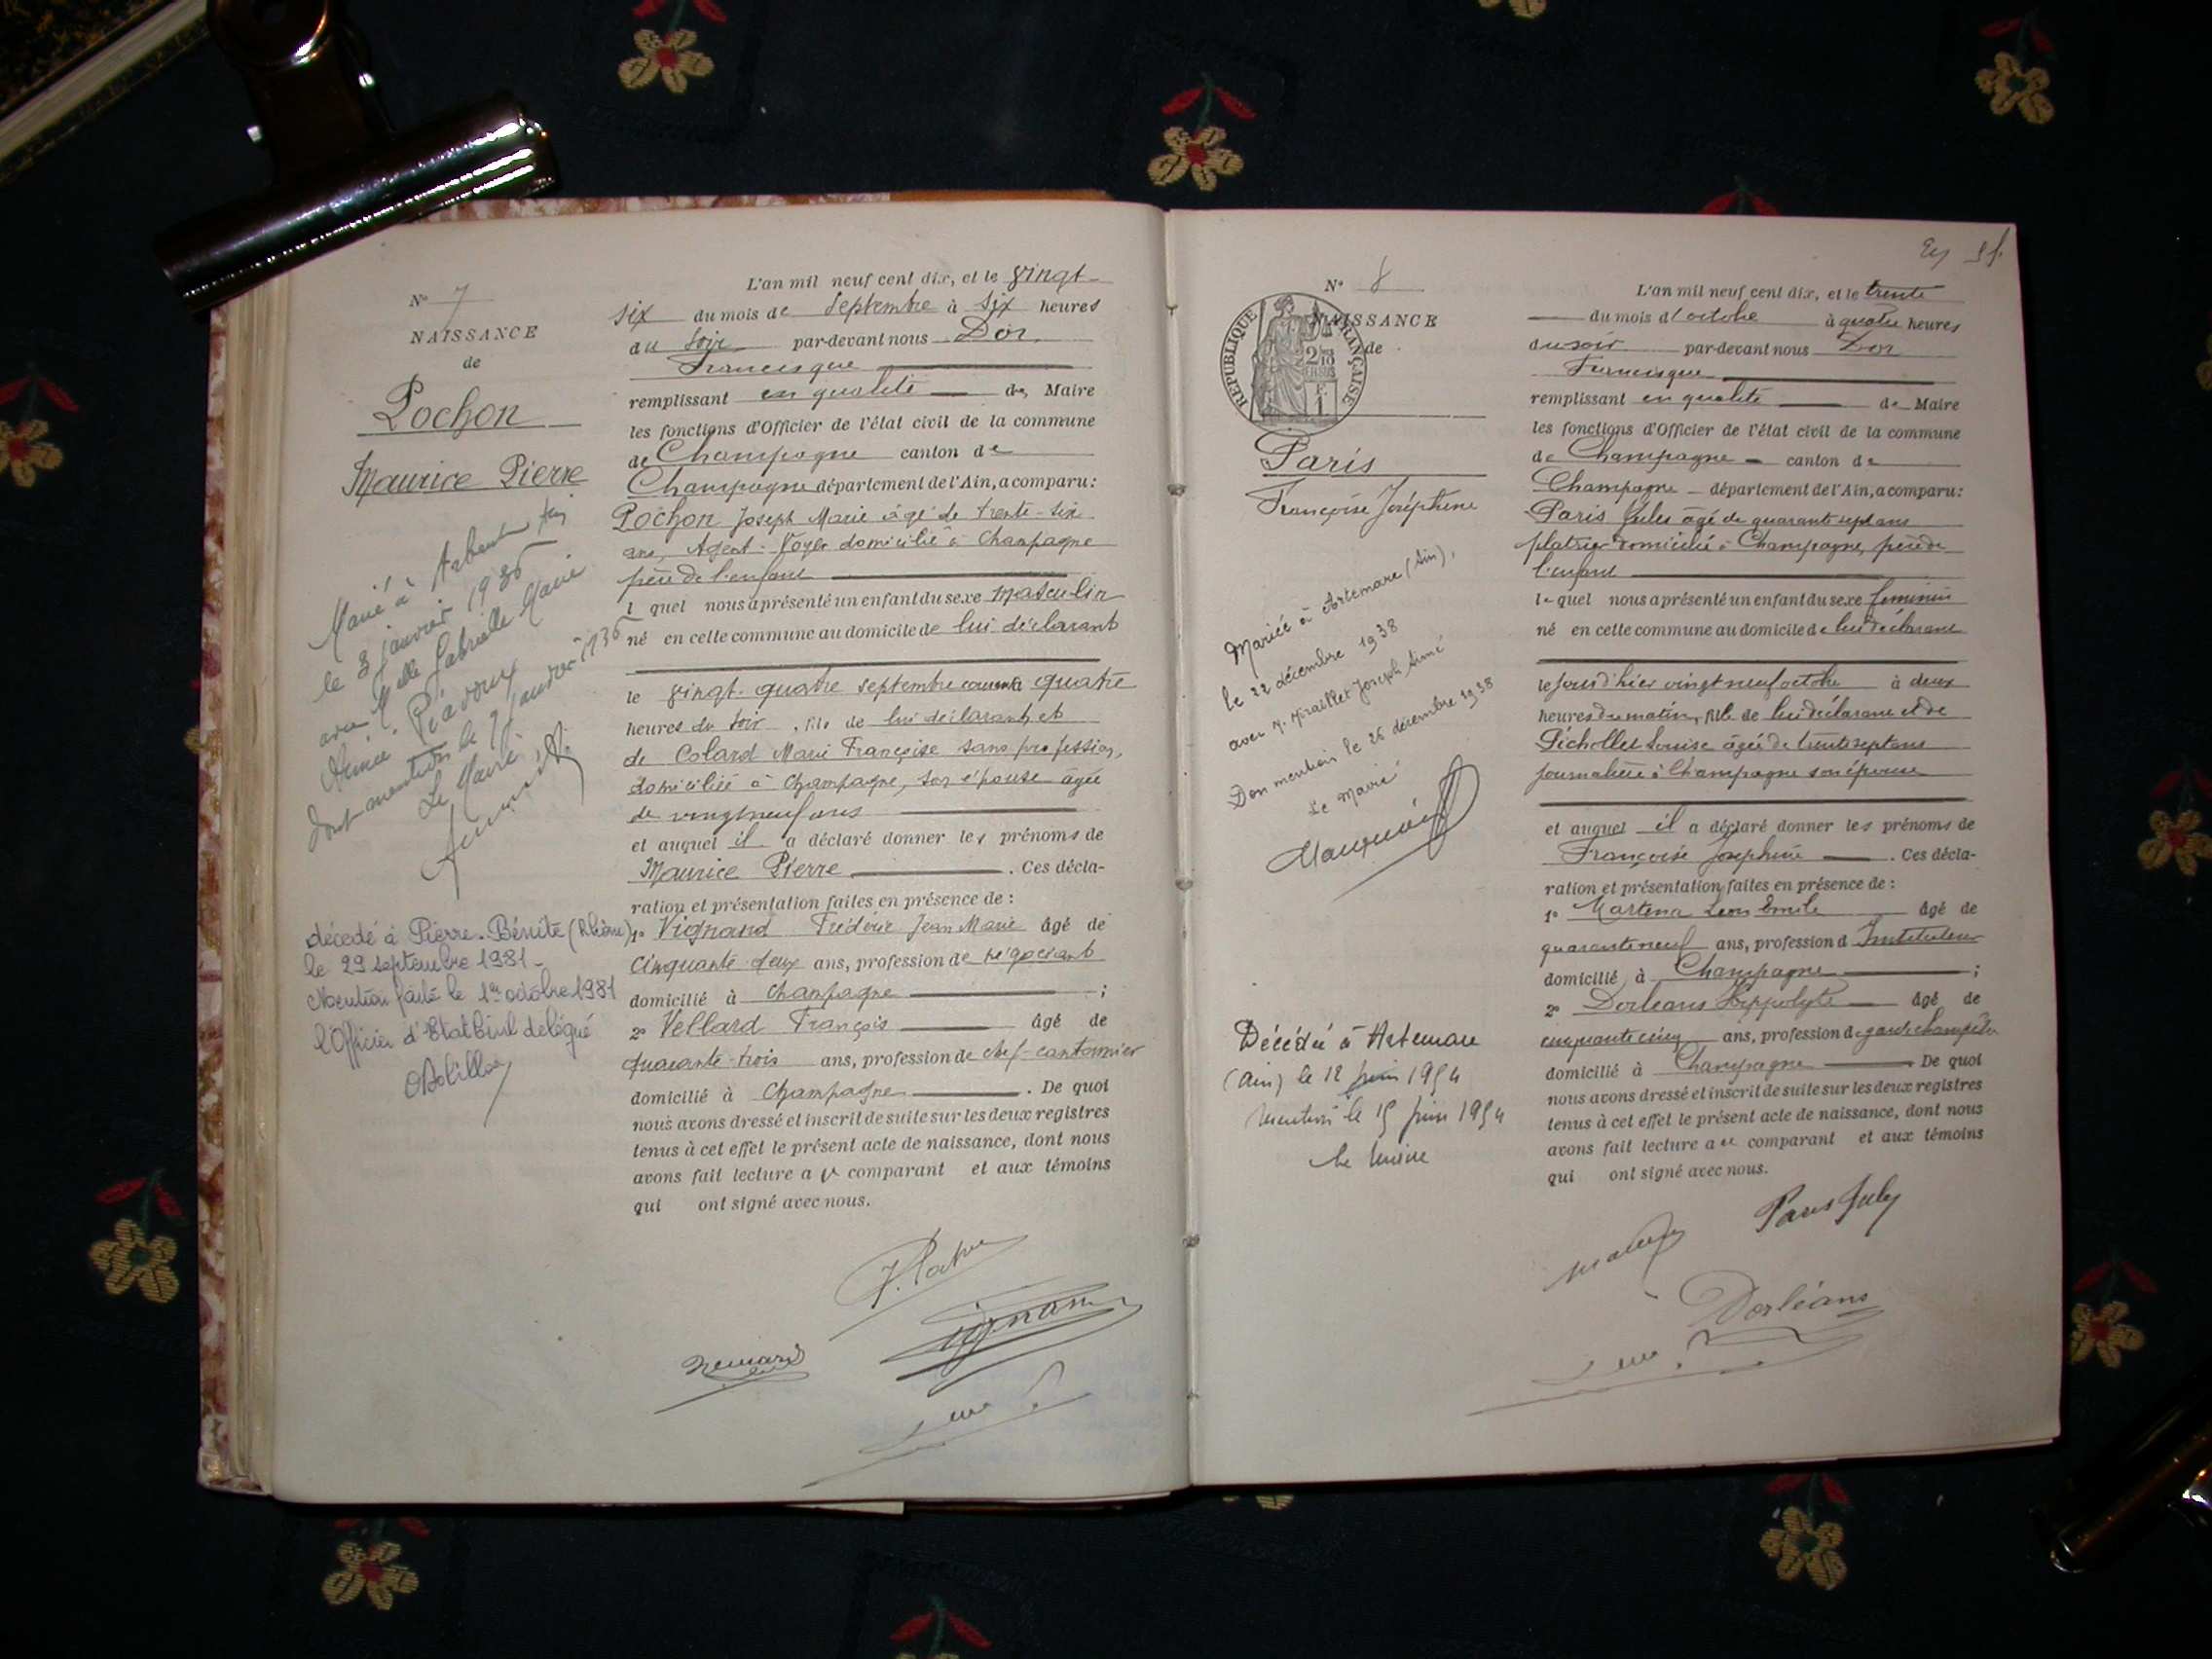 N° 7
NAISSANCE
de
Pochon
Maurice Pierre
Marié à
le 8 janvier 1936
avec Melle Gabrielle Marie
dont mention le 9 janvier 1936
Le Maire
décédé à Pierre-Bénite (Rhône)
le 29 septembre 1981-
Mention faite le 1er octobre 1981
l'Officier d'Etat Civil délégué
L'an mil neuf cent dix, et le vingt
six du mois de septembre à six heures
du soir par-devant nous Dor
Francisque
remplissant en qualité de Maire
les fonctions d'Officier de l'état civil de la commune
de Champagne canton de
Champagne département de l'Ain, a comparu:
Pochon Joseph Marie âgé de trente-six
ans, Agent-Voyer domicilié à Champagne
père de l'enfant
l quel nous a présenté un enfant du sexe masculin
né en cette commune au domicile de lui déclarant
le vingt-quatre septembre courant à quatre
heures du soir, fils de lui déclarant et
de Colard Marie Françoise sans profession,
domiciliée à Champagne, son épouse âgée
de vingt neuf ans
et auquel il a déclaré donner les prénoms de
Maurice Pierre. Ces décla-
ration et présentation faites en présence de :
1° Vignand Frédéric Jean Marie âgé de
cinquante deux ans, profession de négociant
domicilié à Champagne ;
2° Vellard François âgé de
quarante-trois ans, profession de chef-cantonnier
domicilié à Champagne. De quoi
nous avons dressé et inscrit de suite sur les deux registres
tenus à cet effet le présent acte de naissance, dont nous
avons fait lecture au comparant et aux témoins
qui ont signé avec nous.
N° 8
NAISSANCE
de
REPUBLIQUE FRANÇAISE
Paris
Françoise Joséphine
Mariée à Artemare (Ain),
le 22 décembre 1938
avec M. Miraillet Joseph Aimé
Don mention le 26 décembre 1938
Le Maire
Décédée à Artemare
(Ain) le 12 juin 1954
Mention le 15 juin 1954
Le Maire
L'an mil neuf cent dix, et le trente
du mois d'octobre à quatre heures
du soir par-devant nous Dor
Francisque
remplissant en qualité de Maire
les fonctions d'Officier de l'état civil de la commune
de Champagne canton de
Champagne département de l'Ain, a comparu:
Paris Jules âgé de quarante sept ans
platrier domicilié à Champagne, père de
l'enfant
lequel nous a présenté un enfant du sexe féminin
né en cette commune au domicile de lui déclarant
le jour d'hier vingt neuf octobre à deux
heures du matin, fille de lui déclarant et de
Péchollet Louise âgée de trente sept ans
journalière à Champagne son épouse
et auquel il a déclaré donner les prénoms de
Françoise Joséphine. Ces décla-
ration et présentation faites en présence de :
1° Martena Léon Emile âgé de
quarante neuf ans, profession d'Instituteur
domicilié à Champagne ;
2° Dorléans Hippolyte âgé de
cinquante cinq ans, profession de garde champêtre
domicilié à Champagne. De quoi
nous avons dressé et inscrit de suite sur les deux registres
tenus à cet effet le présent acte de naissance, dont nous
avons fait lecture au comparant et aux témoins
qui ont signé avec nous.
Paris Jules
Dorléans